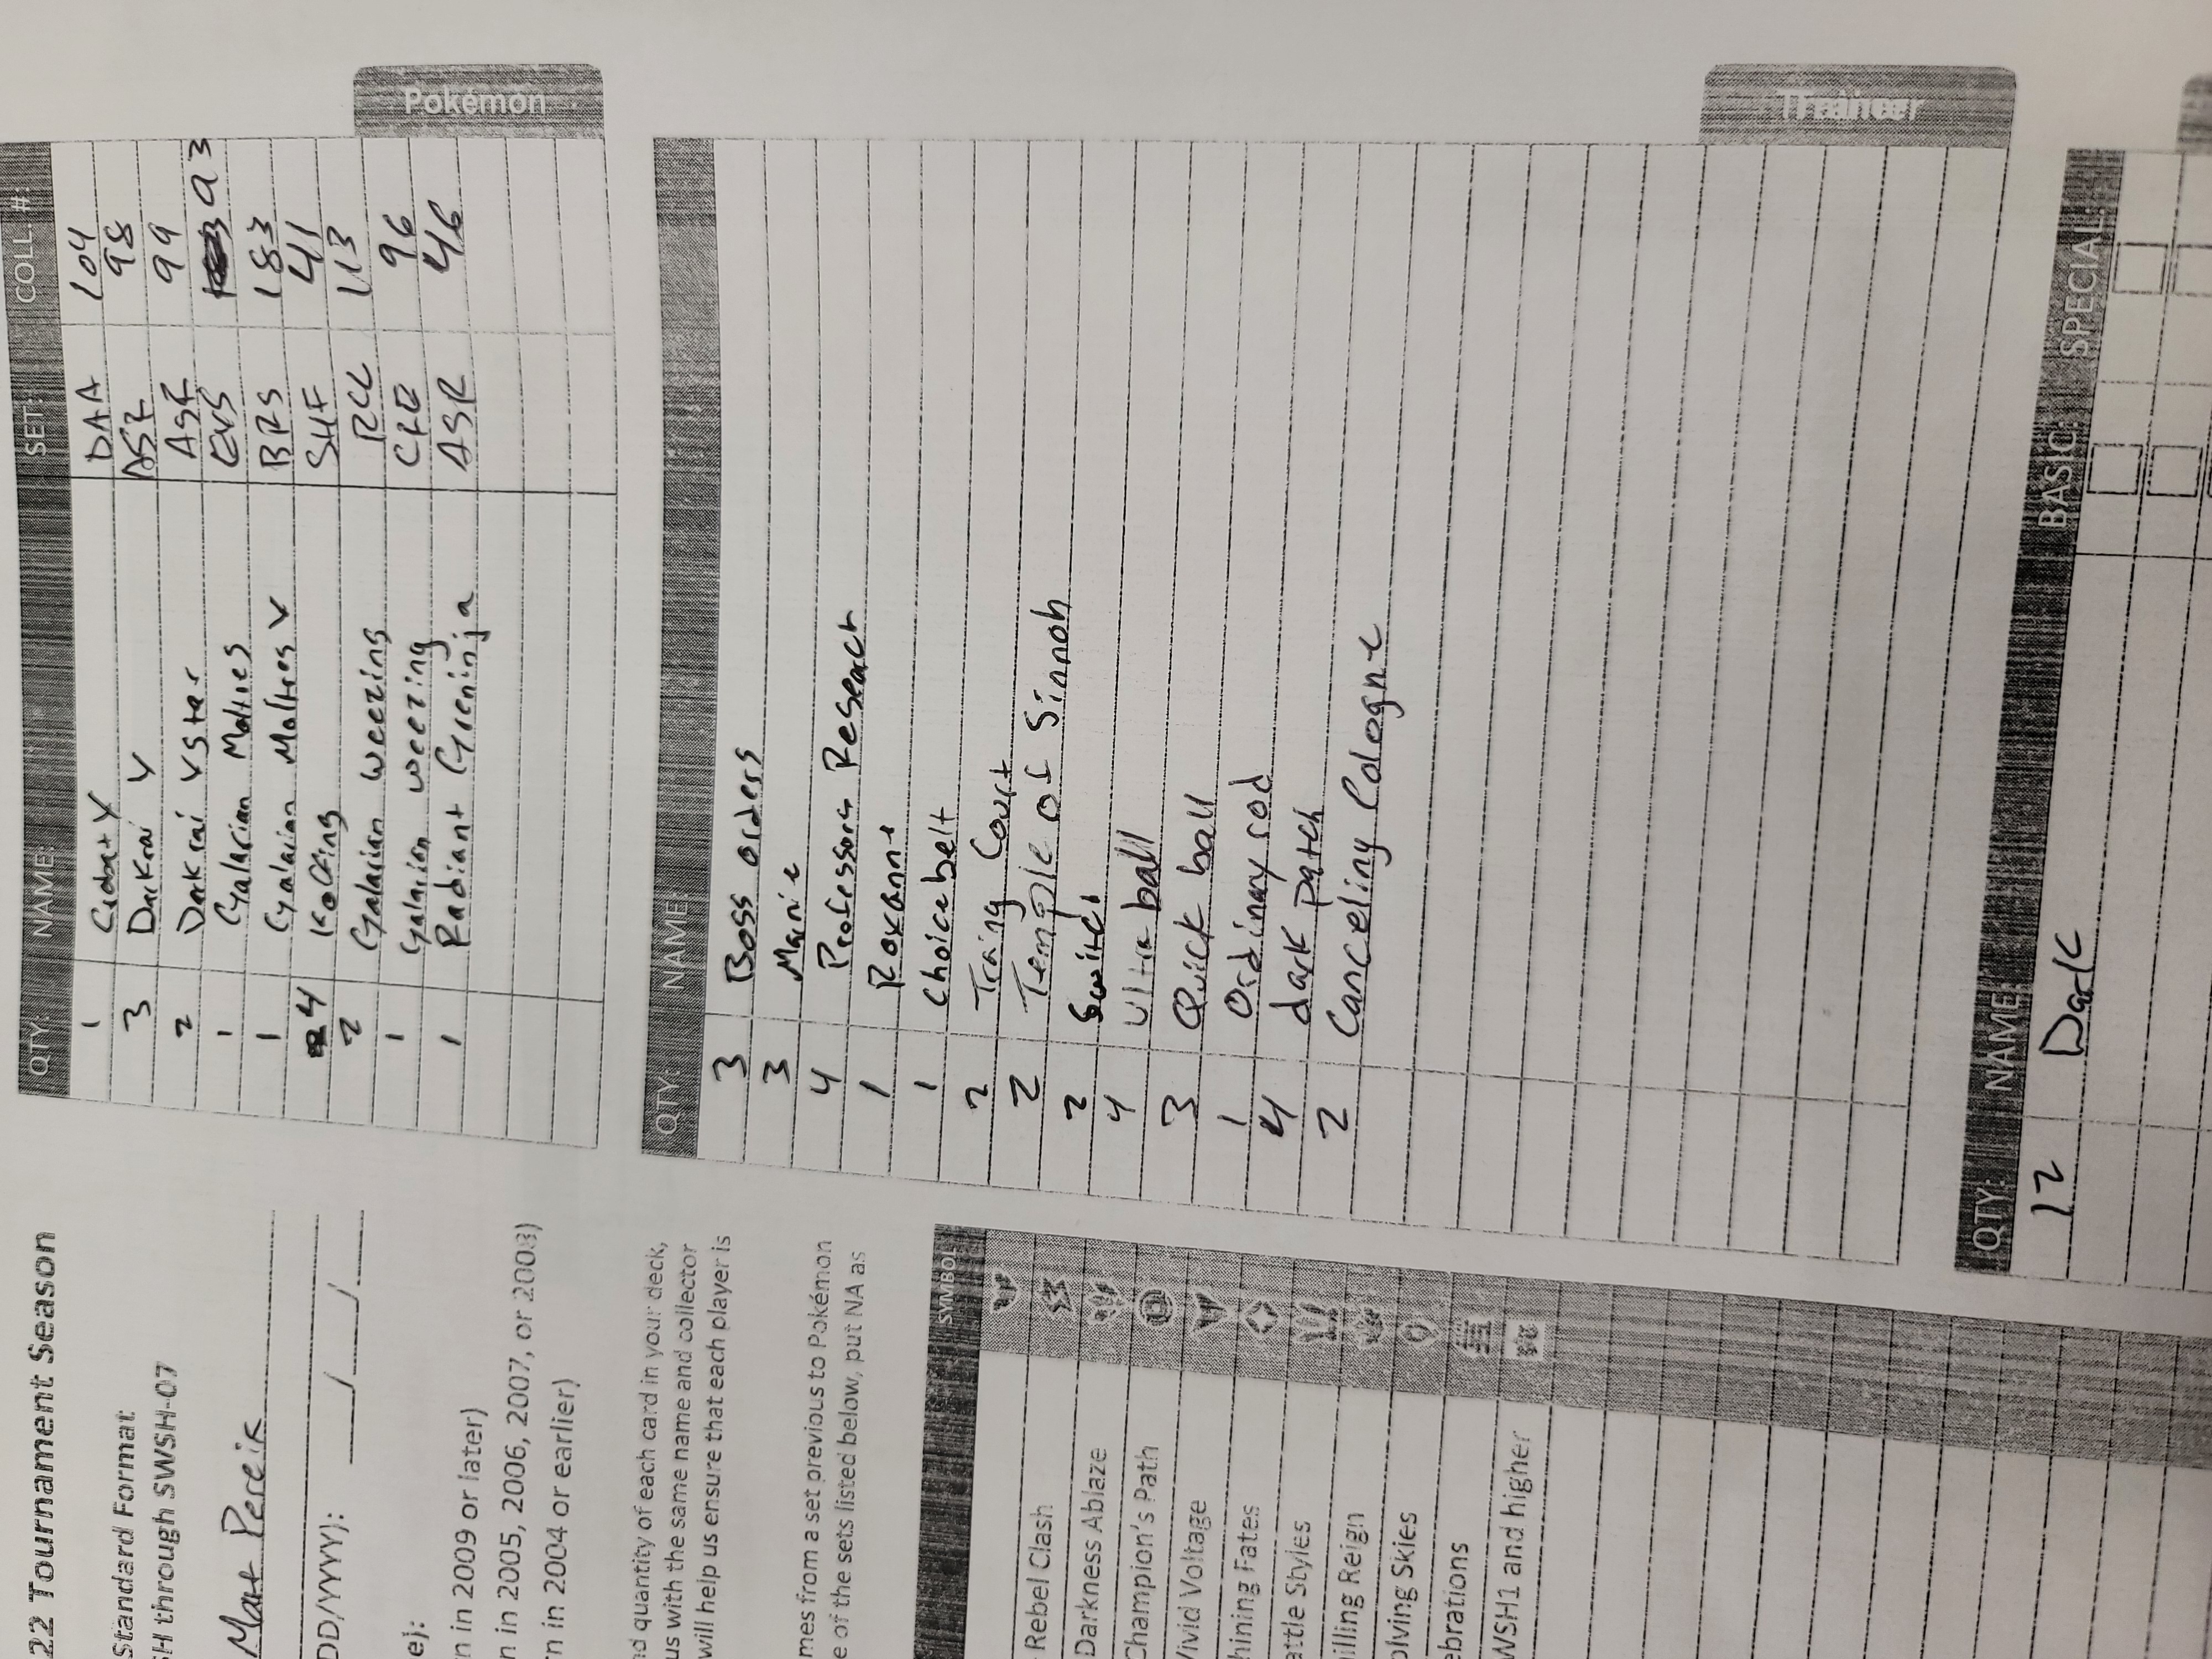 22 Tournament Season
Standard Format
SH through SWSH-07
Matt Pereir
DD/YYYY): ___/___/___
e):
n in 2009 or later)
n in 2005, 2006, 2007, or 2008)
rn in 2004 or earlier)
nd quantity of each card in your deck,
us with the same name and collector
will help us ensure that each player is
mes from a set previous to Pokémon
e of the sets listed below, put NA as
SYMBOL
Rebel Clash
Darkness Ablaze
Champion's Path
Vivid Voltage
hining Fates
attle Styles
illing Reign
olving Skies
ebrations
WSH1 and higher
QTY: NAME: SET: COLL. #:
1 Crobat V DAA 104
3 Darkrai V ASR 98
2 Darkrai VStar ASR 99
1 Galarian Moltres EVS 93
1 Galarian Moltres V BRS 183
4 Koffing SHF 41
2 Galarian Weezing RCL 113
1 Galarian weezing CRE 96
1 Radiant Greninja ASR 46
Pokémon
QTY: NAME:
3 Boss orders
3 Marnie
4 Professors Reseach
1 Roxanne
1 Choice belt
2 Traing Court
2 Temple of Sinnoh
2 Switch
4 Ultra ball
3 Quick ball
1 Ordinary rod
4 dark patch
2 Canceling Cologne
Trainer
QTY: NAME: BASIC: SPECIAL:
12 Dark